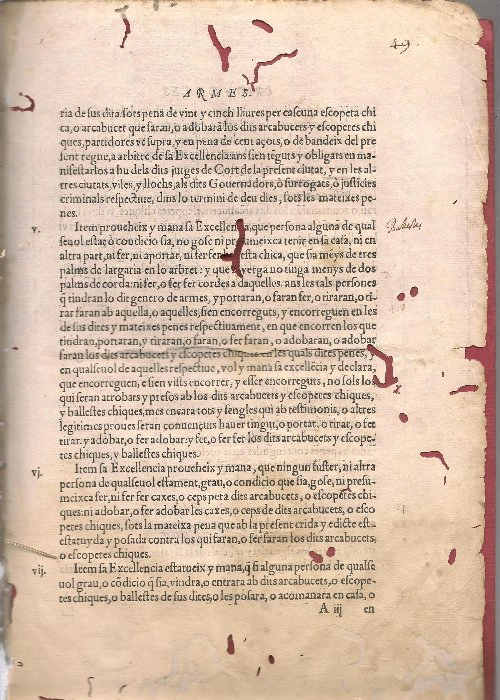 49
ARMES.
ria de sus dita sots pena de vint y cinch lliures per cascuna escopeta chi
ca, o arcabucet que faran, o adobarà los dits arcabucets y escopetes chi
ques, partidores vt supra, y en pena de cent açots, o de bandeix del pre
sent regne, a arbitre de sa Excellencia: ans sien teguts y obligats en ma-
nifestarlos a hu dels dits jutges de Cort de la present ciutat, y en les al-
tres ciutats, viles, y llochs, als dits Gouernadors, ò surrogats, o justicies
criminals respectiue, dins lo termini de deu dies, sots les mateixes pe-
nes.
v. Item proucheix y mana sa Excellencia, que persona alguna de qual
seuol estat ò condicio sia, no gose ni presumeixca tenir en sa casa, ni en
altra part, ni fer, ni aportar, ni fer fer ballesta chica, que sia meys de tres
palms de largaria en lo arbret: y que la verga no tinga menys de dos
palms de corda: ni fer, o fer fer cordes a daquelles. ans les tals persones
q̃ tindran lo dit genero de armes, y portaran, o faran fer, o tiraran, o ti-
rar faran ab aquella, o aquelles, sien encorreguts, y encorreguen en les
de sus dites y mateixes penes respectiuament, en que encorren los que
tindran, portaran, y tiraran, o faran, o fer faran, o adobaran, o adobar
faran los dits arcabucets y escopetes chiques, en les quals dites penes, y
en qualseuol de aquelles respectiue, vol y mana sa excellẽcia y declara,
que encorreguen, e sien vists encorrer, y esser encorreguts, no sols los
qui seran atrobats y presos ab los dits arcabucets y escopetes chiques,
y ballestes chiques, mes encara tots y sengles qui ab testimonis, o altres
legitimes proues seran conuençuts hauer tingut, o portat, o tirat, o fet
tirar: y adobar, o fer adobar: y fet, o fer fer los dits arcabucets y escope-
tes chiques, y ballestes chiques.
vj. Item sa Excellencia proucheix y mana, que ningun fuster, ni altra
persona de qualseuol estament, grau, o condicio que sia, gose, ni presu-
meixca fer, ni fer fer caxes, o ceps peta dits arcabucets, o escopetes chi-
ques: ni adobar, o fer adobar les caxes, o ceps de dits arcabucets, o esco
petes chiques, sots la mateixa pena que ab la present crida y edicte est-
estatuyda y posada contra los qui faran, o fer faran los dits arcabucets,
o escopetes chiques.
vij. Item sa Excellencia estatueix y mana, q̃ si alguna persona de qualse
uol grau, o cõdicio q̃ sia, vindra, o entrara ab dits arcabucets, o escope-
tes chiques, o ballestes de sus dites, o les posara, o acomanara en casa, o
A iij en